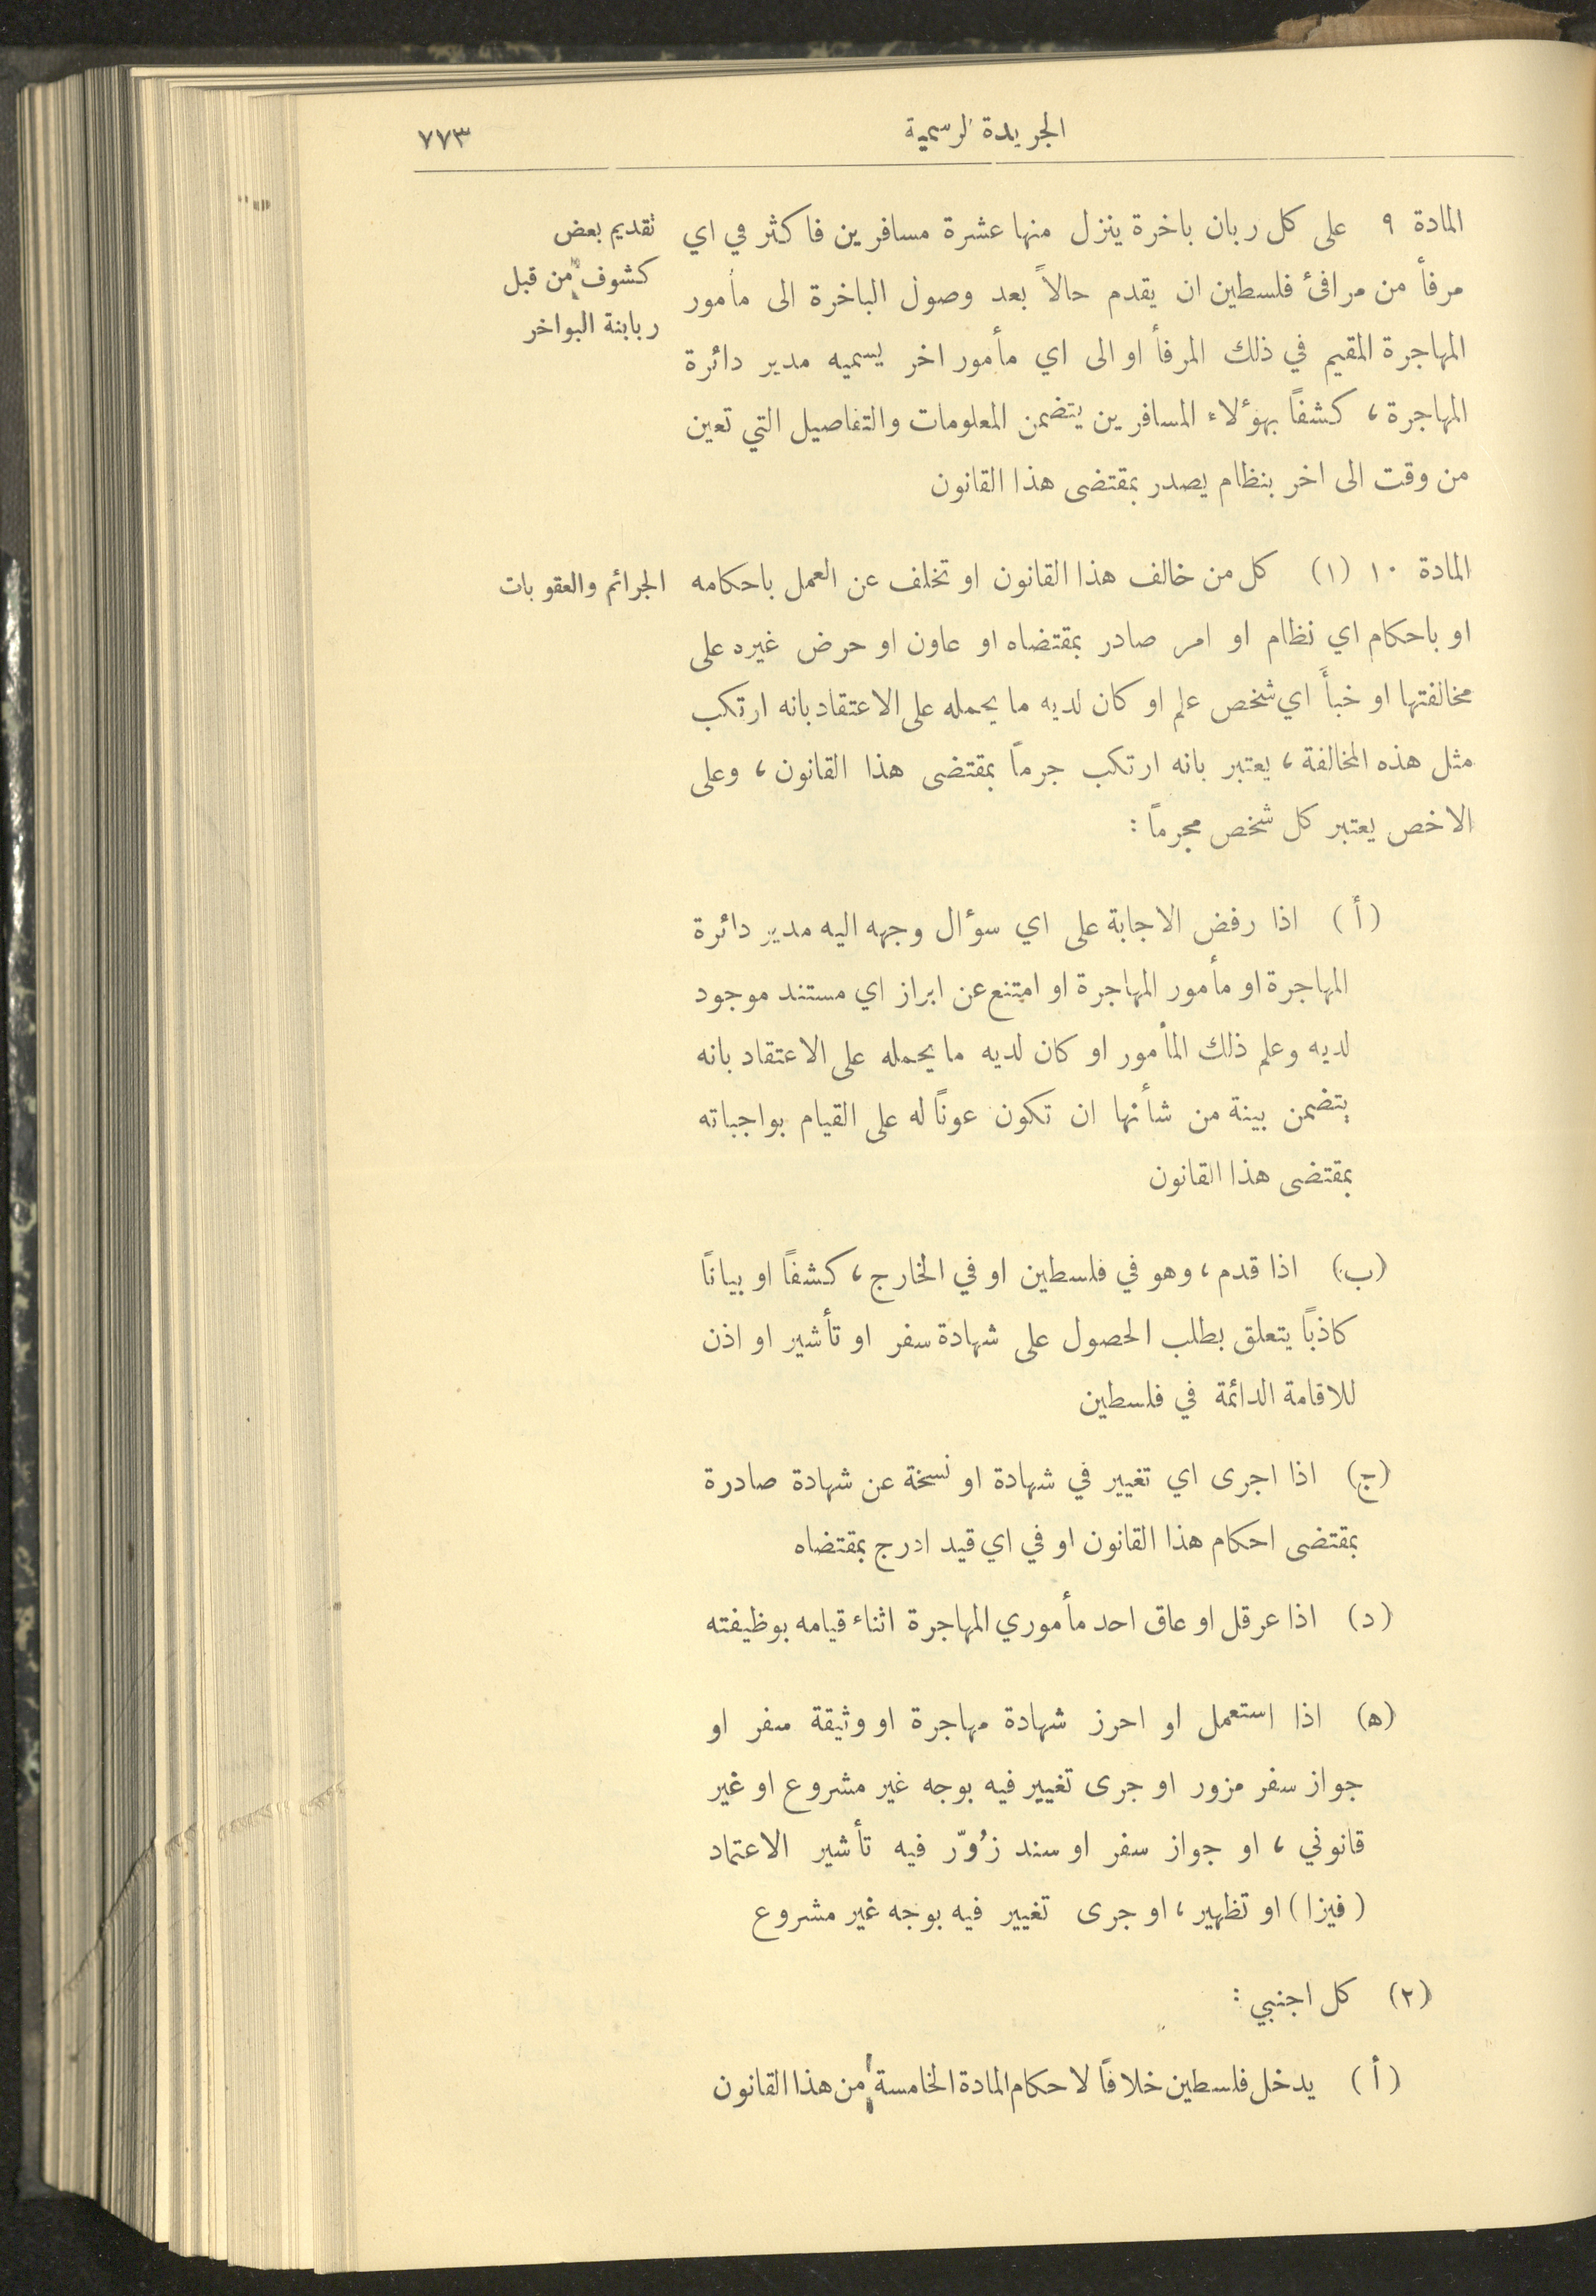 الجريدة الرسمية
٧٧٣
المادة ٩ على كل ربان باخرة ينزل منها عشرة مسافرين فاكثر في اي
مرفأ من مرافئ فلسطين ان يقدم حالاً بعد وصول الباخرة الى مأمور
المهاجرة المقيم في ذلك المرفأ او الى اي مأمور اخر يسميه مدير دائرة
المهاجرة، كشفاً بهؤلاء المسافرين يتضمن المعلومات والتفاصيل التي تعين
من وقت الى اخر بنظام يصدر بمقتضى هذا القانون
تقديم بعض
كشوف من قبل
ربابنة البواخر
المادة ١٠ (١) كل من خالف هذا القانون او تخلف عن العمل باحكامه
او باحكام اي نظام او امر صادر بمقتضاه او عاون او حرض غيره على
مخالفتها او خبأَ اي شخص علم او كان لديه ما يحمله على الاعتقاد بانه ارتكب
مثل هذه المخالفة، يعتبر بانه ارتكب جرماً بمقتضى هذا القانون، وعلى
الاخص يعتبر كل شخص مجرماً:
الجرائم والعقوبات
(أ) اذا رفض الاجابة على اي سؤال وجهه اليه مدير دائرة
المهاجرة او مأمور المهاجرة او امتنع عن ابراز اي مستند موجود
لديه وعلم ذلك المأمور او كان لديه ما يحمله على الاعتقاد بانه
يتضمن بينة من شأنها ان تكون عوناً له على القيام بواجباته
بمقتضى هذا القانون
(ب) اذا قدم، وهو في فلسطين او في الخارج، كشفاً او بياناً
كاذباً يتعلق بطلب الحصول على شهادة سفر او تأشير او اذن
للاقامة الدائمة في فلسطين
(ج) اذا اجرى اي تغيير في شهادة او نسخة عن شهادة صادرة
بمقتضى احكام هذا القانون او في اي قيد ادرج بمقتضاه
(د) اذا عرقل او عاق احد مأموري المهاجرة اثناء قيامه بوظيفته
(ه) اذا استعمل او احرز شهادة مهاجرة او وثيقة سفر او
جواز سفر مزور او جرى تغيير فيه بوجه غير مشروع او غير
قانوني، او جواز سفر او سند زُوّر فيه تأشير الاعتماد
(فيزا) او تظهير، او جرى تغيير فيه بوجه غير مشروع
(٢) كل اجنبي:
(أ) يدخل فلسطين خلافاً لاحكام المادة الخامسة من هذا القانون